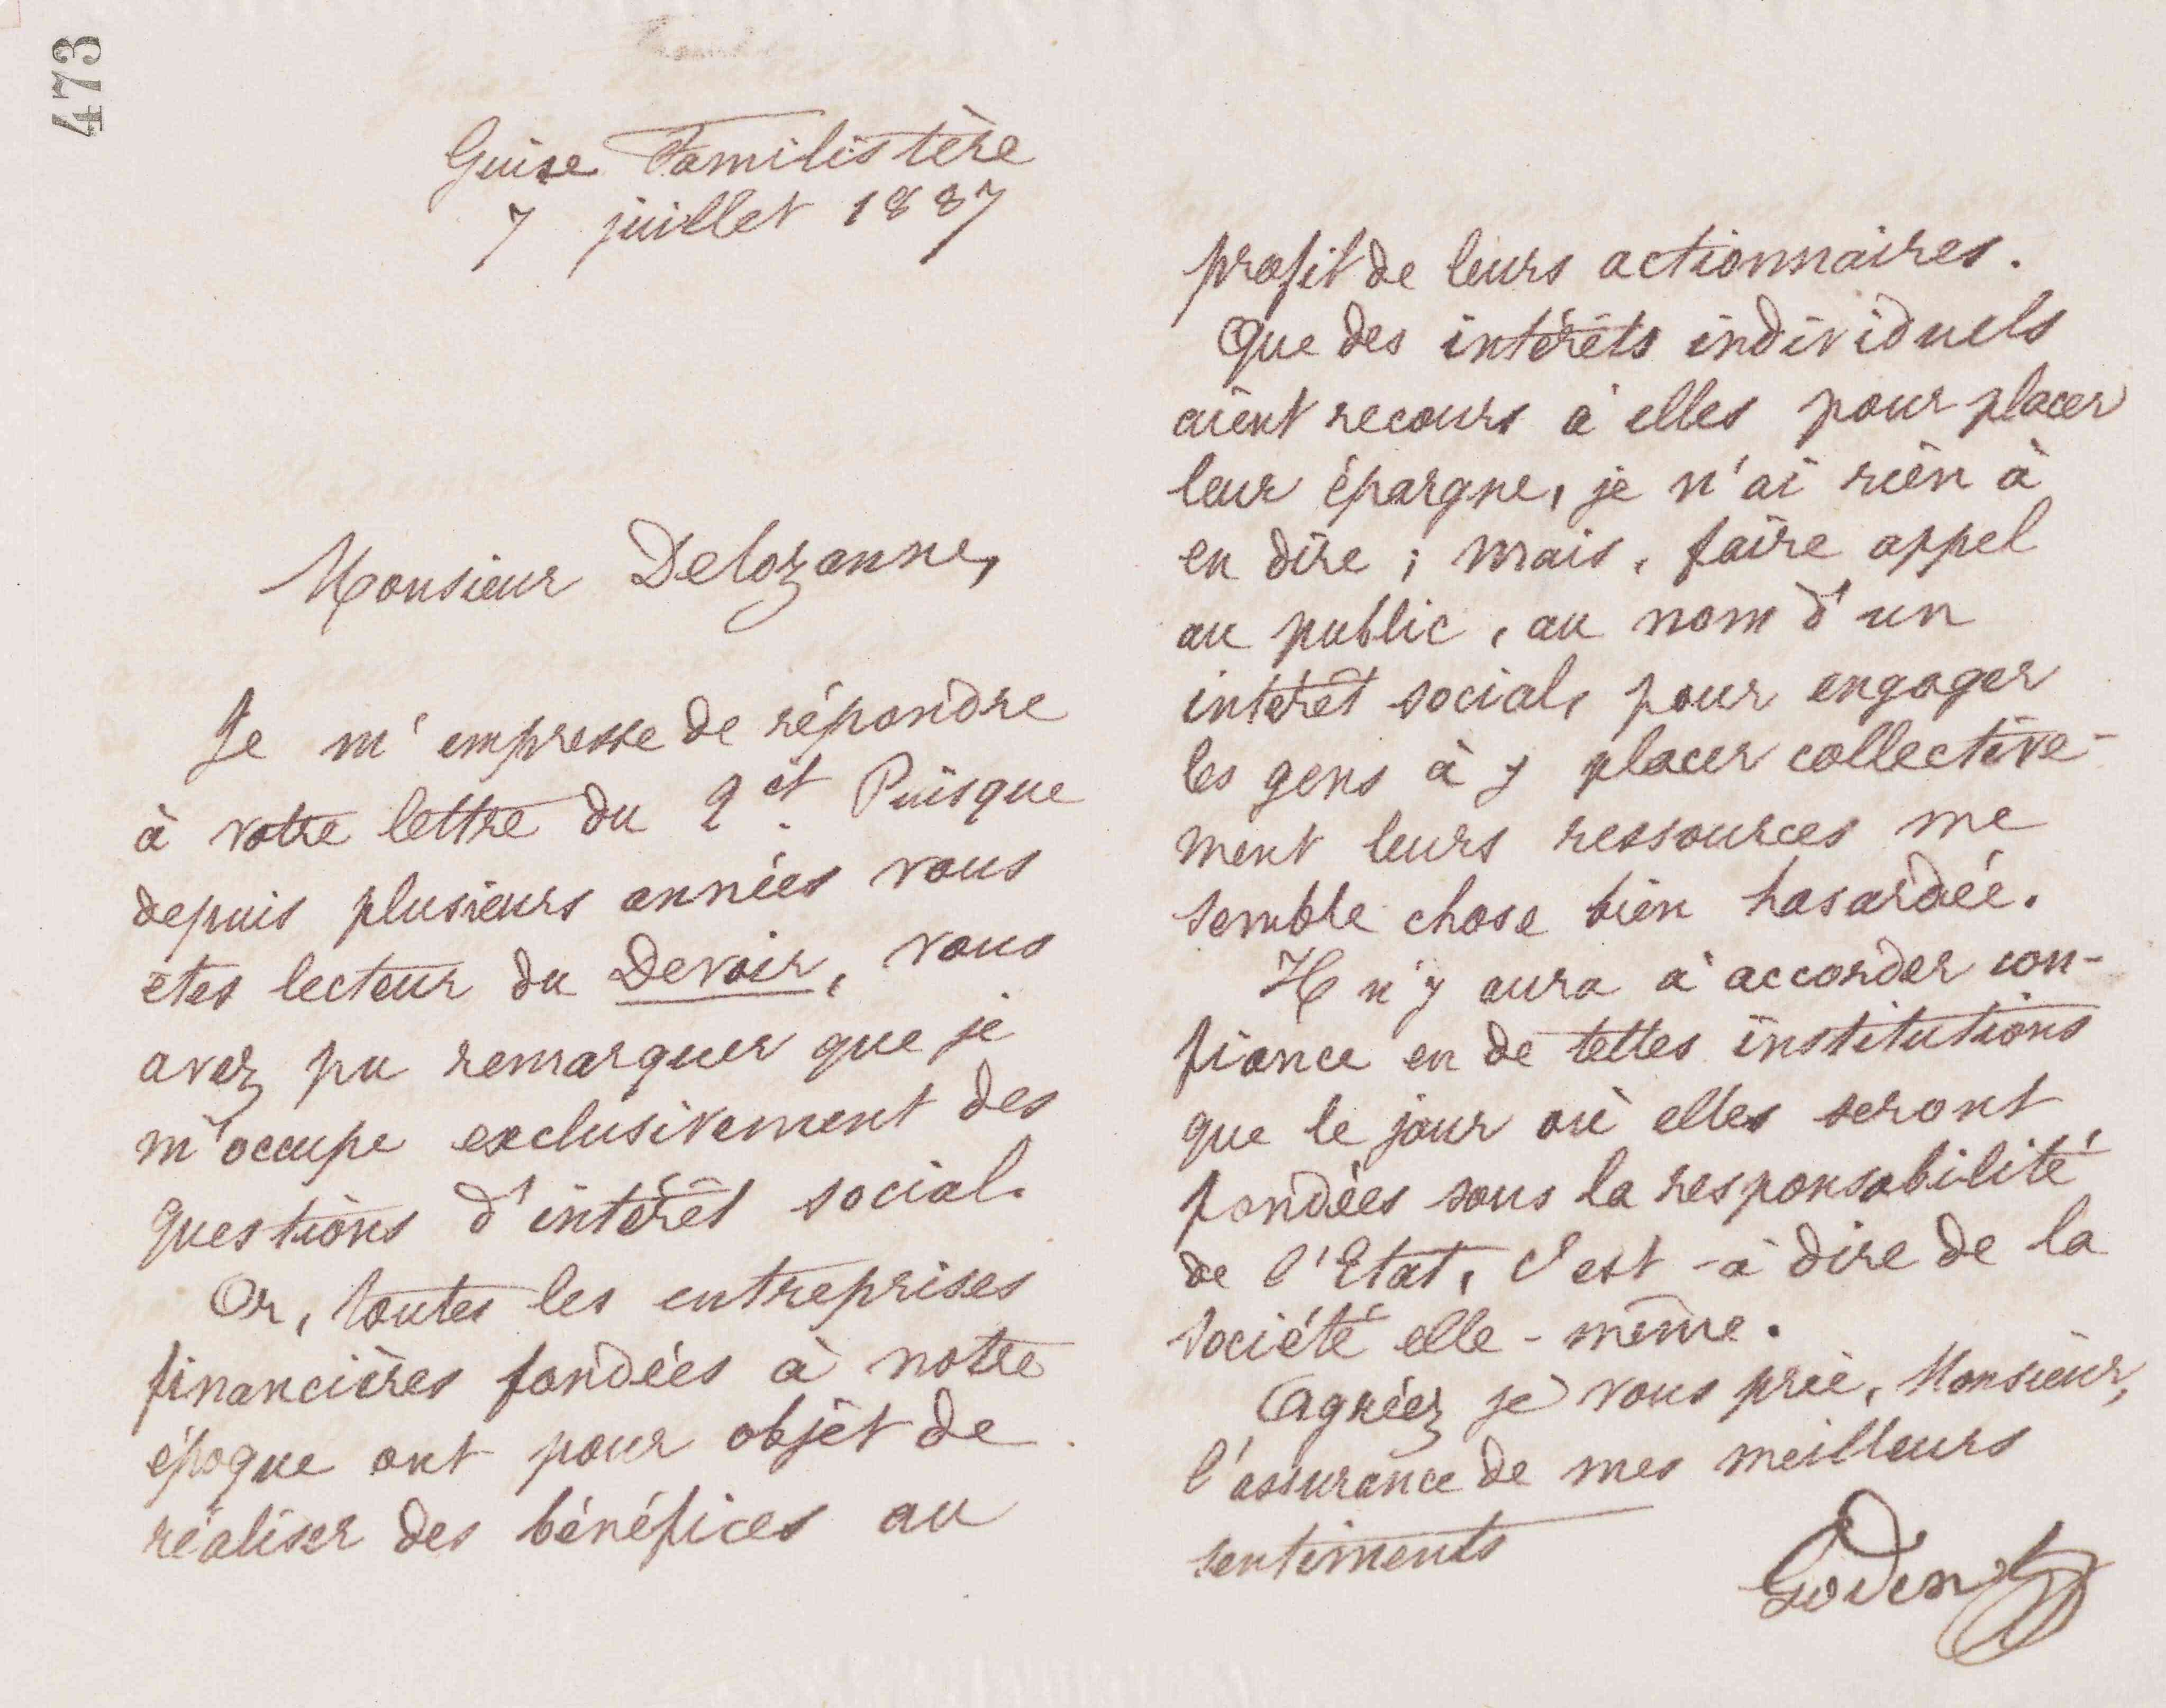 473
Guise Familistère
7 juillet 1887
Monsieur Delozanne,
Je m'empresse de répondre
à votre lettre du 2 ct. Puisque
depuis plusieurs années vous
êtes lecteur du Devoir, vous
avez pu remarquer que je
m'occupe exclusivement des
questions d'intérêt social.
Or, toutes les entreprises
financières fondées à notre
époque ont pour objet de
réaliser des bénéfices au
profit de leurs actionnaires.
Que des intérêts individuels
aient recours à elles pour placer
leur épargne, je n'ai rien à
en dire ; mais, faire appel
au public, au nom d'un
intérêt social, pour engager
les gens à y placer collective-
ment leurs ressources me
semble chose bien hasardée.
Il n'y aura à accorder con-
fiance en de telles institutions
que le jour où elles seront
fondées sous la responsabilité
de l'Etat, c'est-à dire de la
société elle-même.
Agréez je vous prie, Monsieur,
l'assurance de mes meilleurs
sentiments
Godin